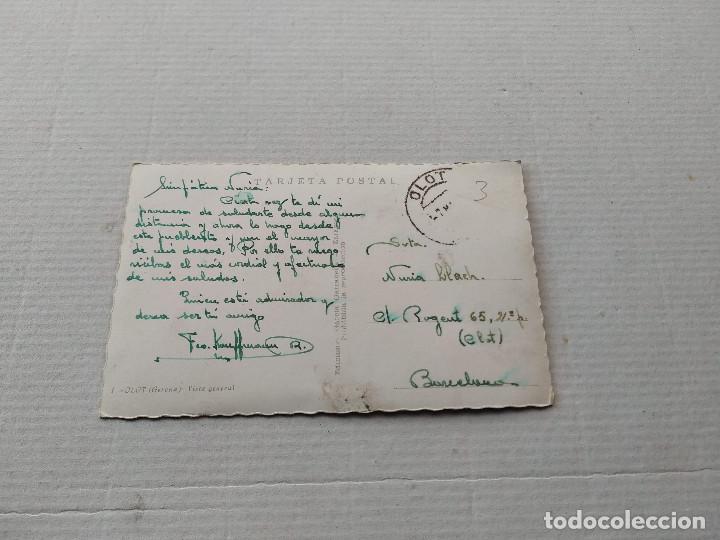 TARJETA POSTAL
Simpática Nuria:
Cierta vez te di mi
promesa de saludarte desde alguna
distancia y ahora lo hago desde
este pueblecito y con el mayor
de mis deseos. Por ello te ruego
recibas el más cordial y afectuoso
de mis saludos.
Quien está admirador y
desea ser tu amigo
Fco. Kauffmann R.
1.-OLOT (Gerona) Vista general
Prohibida la reproducción
OLOT
3
Srta.
Nuria Llach
c/ Rogent 65, 2º 2ª
(Clot)
Barcelona
todocoleccion
todocoleccion.net